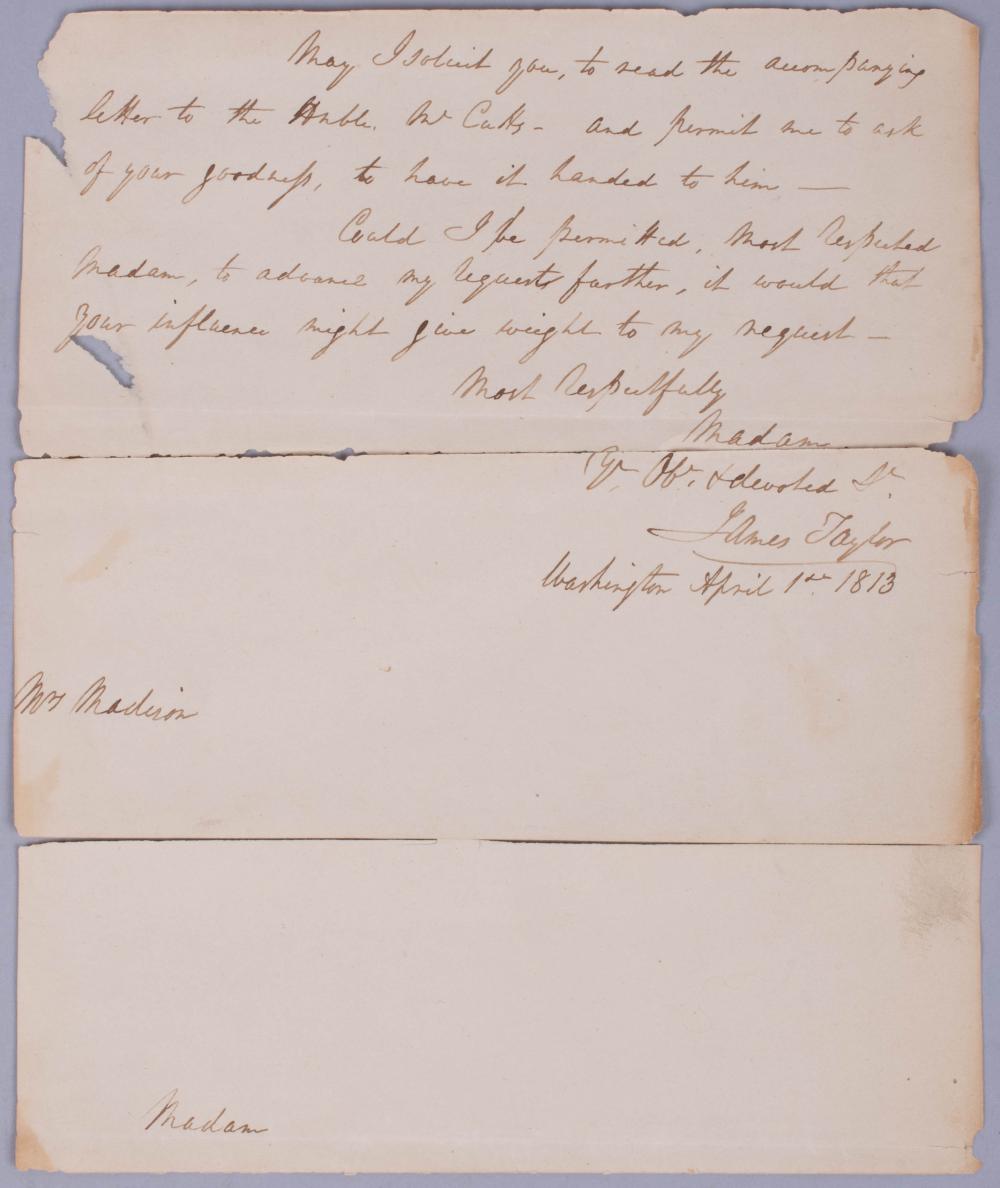 May I solicit you, to read the accompanying
letter to the Honble. Mr Cutts - and permit me to ask
of your goodness, to have it handed to him —
Could I be permitted, Most Respected
Madam, to advance my requests further, it would that
your influence might give weight to my request —
Most Respectfully
Madam
Yr. Obt. & devoted St.
James Taylor
Washington April 1st 1813
Mrs Madison
Madam